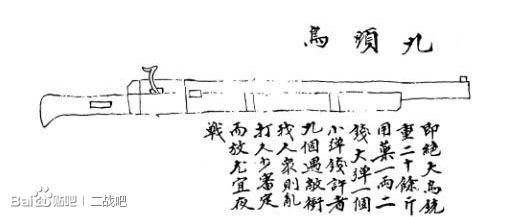 九頭鳥
即絕大鳥銃
重二十餘斤
用藥一兩二
錢大彈一個
小彈錢許者
九個遇敵衝
我人衆則亂
打人少審定
而放尤宜夜
戰
Bai du 贴吧 | 二战吧